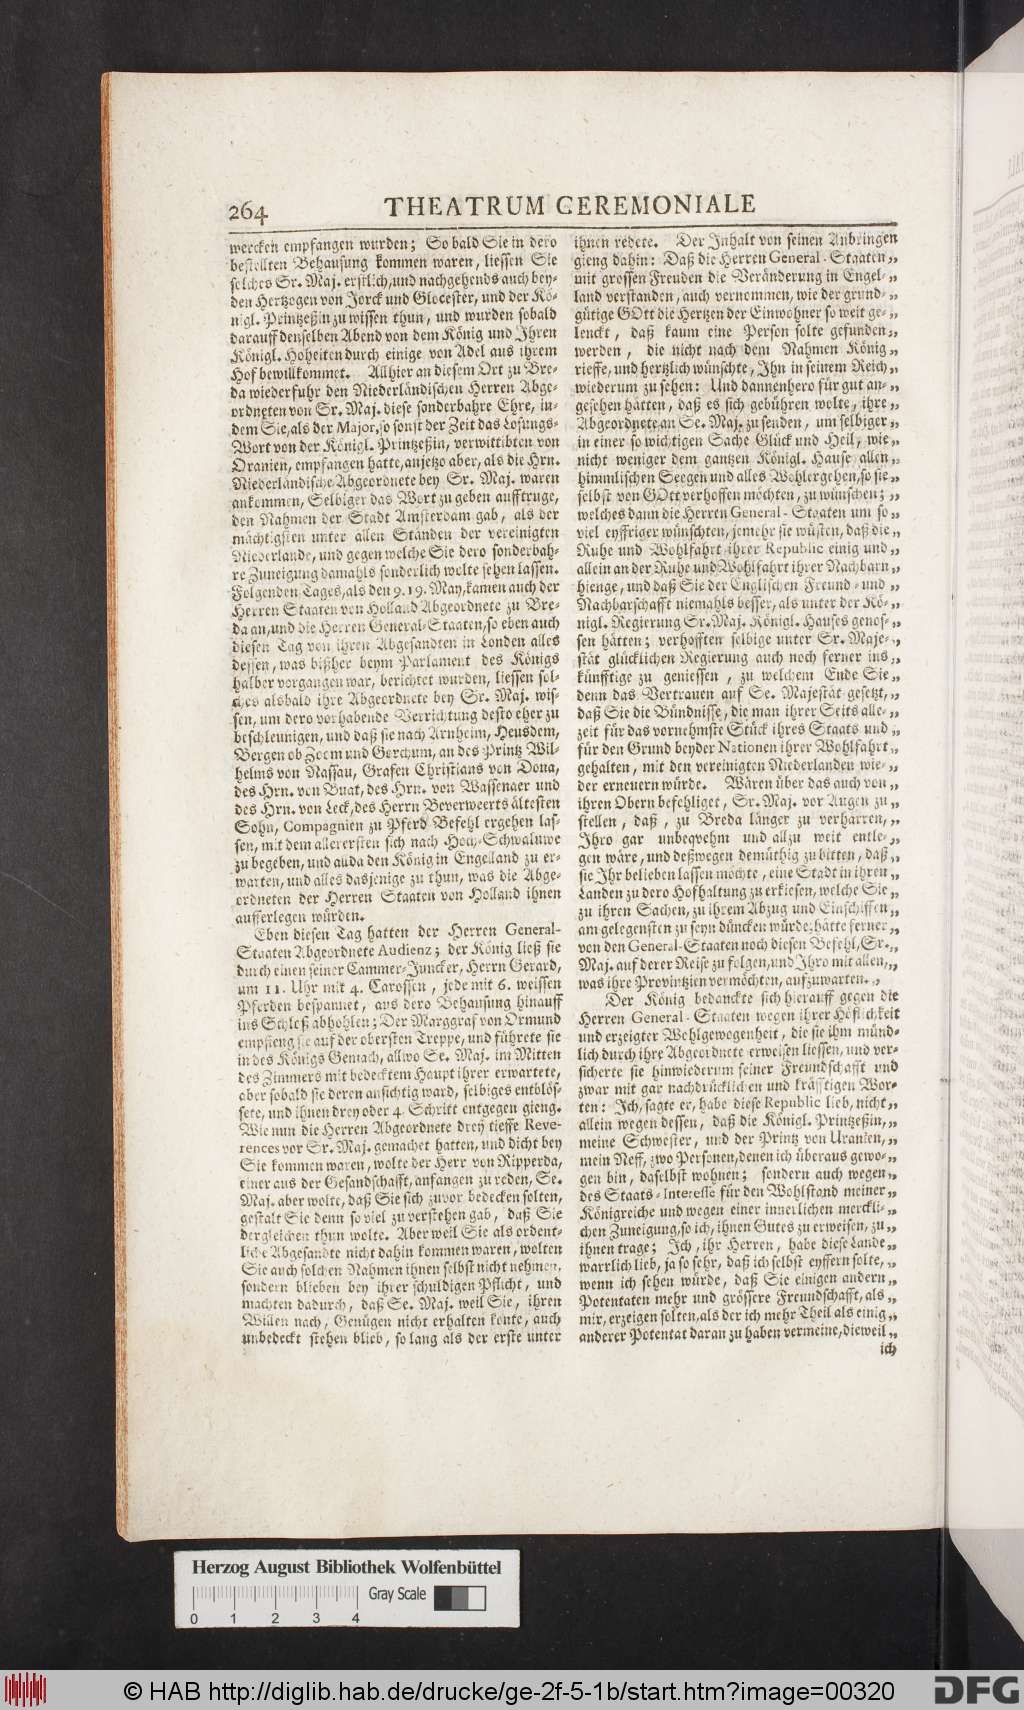 264 THEATRUM CEREMONIALE
wercken empfangen wurden; So bald Sie in dero
bestellten Behausung kommen waren, liessen Sie
solches Sr. Maj. erstlich, und nachgehends auch bey-
den Hertzogen von Jorck und Glocester, und der Kö-
nigl. Printzeßin zu wissen thun, und wurden sobald
darauff denselben Abend von dem König und Ihren
Königl. Hoheiten durch einige von Adel aus ihrem
Hof bewillkommet. Allhier an diesem Ort zu Bre-
da wiederfuhr den Niederländischen Herren Abge-
ordneten von Sr. Maj. diese sonderbahre Ehre, in-
dem Sie, als der Major, so sonst der Zeit das Losungs-
Wort von der Königl. Printzeßin, verwittibten von
Oranien, empfangen hatte, anjetzo aber, als die Hrn.
Niederländische Abgeordnete bey Sr. Maj. waren
ankommen, Selbiger das Wort zu geben aufftruge,
den Nahmen der Stadt Amsterdam gab, als der
mächtigsten unter allen Ständen der vereinigten
Niederlande, und gegen welche Sie dero sonderbah-
re Zuneigung damahls sonderlich wolte sehen lassen.
Folgenden Tages, als den 9. 19. May, kamen auch der
Herren Staaten von Holland Abgeordnete zu Bre-
da an, und die Herren General-Staaten, so eben auch
diesen Tag von ihren Abgesandten in Londen alles
dessen, was bißher beym Parlament des Königs
halber vorgangen war, berichtet wurden, liessen sol-
ches alsbald ihre Abgeordnete bey Sr. Maj. wis-
sen, um dero vorhabende Verrichtung desto eher zu
beschleunigen, und daß sie nach Arnheim, Heusdem,
Bergen ob Zoom und Gorchum, an des Printz Wil-
helms von Nassau, Grafen Christians von Dona,
des Hrn. von Buat, des Hrn. von Wassenaer und
des Hrn. von Leck, des Herrn Beverweerts ältesten
Sohn, Compagnien zu Pferd Befehl ergehen las-
sen, mit dem allerersten sich nach Hoch-Schwaluwe
zu begeben, und allda den König in Engelland zu er-
warten, und alles dasjenige zu thun, was die Abge-
ordneten der Herren Staaten von Holland ihnen
aufferlegen würden.
Eben diesen Tag hatten der Herren General-
Staaten Abgeordnete Audienz; der König ließ sie
durch einen seiner Cammer-Juncker, Herrn Gerard,
um 11. Uhr mit 4. Carossen, jede mit 6. weissen
Pferden bespannet, aus dero Behausung hinauff
ins Schloß abhohlen; Der Marggraf von Ormund
empfieng sie auf der obersten Treppe, und führete sie
in des Königs Gemach, allwo Se. Maj. im Mitten
des Zimmers mit bedecktem Haupt ihrer erwartete,
aber sobald sie deren ansichtig ward, selbiges entblös-
sete, und ihnen drey oder 4. Schritt entgegen gieng.
Wie nun die Herren Abgeordnete drey tieffe Reve-
rences vor Sr. Maj. gemachet hatten, und dicht bey
Sie kommen waren, wolte der Herr von Ripperda,
einer aus der Gesandschafft, anfangen zu reden, Se.
Maj. aber wolte, daß Sie sich zuvor bedecken solten,
gestalt Sie denn so viel zu verstehen gab, daß Sie
dergleichen thun wolte. Aber weil Sie als ordent-
liche Abgesandte nicht dahin kommen waren, wolten
Sie auch solchen Nahmen ihnen selbst nicht nehmen,
sondern blieben bey ihrer schuldigen Pflicht, und
machten dadurch, daß Se. Maj. weil Sie, ihren
Willen nach, Genügen nicht erhalten konte, auch
unbedeckt stehen blieb, so lang als der erste unter
ihnen redete. Der Inhalt von seinen Anbringen
gieng dahin: Daß die Herren General-Staaten„
mit grossen Freuden die Veränderung in Engel-„
land verstanden, auch vernommen, wie der grund-„
gütige GOtt die Hertzen der Einwohner so weit ge-„
lenckt, daß kaum eine Person solte gefunden„
werden, die nicht nach dem Nahmen König„
rieffe, und hertzlich wünschte, Ihn in seinem Reich„
wiederum zu sehen: Und dannenhero für gut an-„
gesehen hätten, daß es sich gebühren wolte, ihre„
Abgeordnete an Se. Maj. zu senden, um selbiger„
in einer so wichtigen Sache Glück und Heil, wie„
nicht weniger dem gantzen Königl. Hause allen„
himmlischen Seegen und alles Wohlergehen, so sie„
selbst von GOtt verhoffen möchten, zu wünschen;„
welches dann die Herren General-Staaten um so„
viel eyffriger wünschten, jemehr sie wüsten, daß die„
Ruhe und Wohlfahrt ihrer Republic einig und„
allein an der Ruhe und Wohlfahrt ihrer Nachbarn„
hienge, und daß Sie der Englischen Freund- und„
Nachbarschafft niemahls besser, als unter der Kö-„
nigl. Regierung Sr. Maj. Königl. Hauses genos-„
sen hätten; verhofften selbige unter Sr. Maje-„
stät glücklichen Regierung auch noch ferner ins„
künfftige zu geniessen, zu welchem Ende Sie„
denn das Vertrauen auf Se. Majestät gesetzt,„
daß Sie die Bündnisse, die man ihrer Seits alle-„
zeit für das vornehmste Stück ihres Staats und„
für den Grund beyder Nationen ihrer Wohlfahrt„
gehalten, mit den vereinigten Niederlanden wie-„
der erneuern würde. Wären über das auch von„
ihren Obern befehliget, Sr. Maj. vor Augen zu„
stellen, daß, zu Breda länger zu verharren,„
Ihro gar unbeqvehm und allzu weit entle-„
gen wäre, und deßwegen demüthig zu bitten, daß„
sie Ihr belieben lassen möchte, eine Stadt in ihren„
Landen zu dero Hofhaltung zu erkiesen, welche Sie„
zu ihren Sachen, zu ihrem Abzug und Einschiffen„
am gelegensten zu seyn düncken würde; hätte ferner„
von den General-Staaten noch diesen Befehl, Sr.„
Maj. auf derer Reise zu folgen, und Ihro mit allen,„
was ihre Provintzien vermöchten, aufzuwarten.„
Der König bedanckte sich hierauff gegen die
Herren General-Staaten wegen ihrer Höflichkeit
und erzeigter Wohlgewogenheit, die sie ihm münd-
lich durch ihre Abgeordnete erweisen liessen, und ver-
sicherte sie hinwiederum seiner Freundschafft und
zwar mit gar nachdrücklichen und kräfftigen Wor-
ten: Ich, sagte er, habe diese Republic lieb, nicht„
allein wegen dessen, daß die Königl. Printzeßin,„
meine Schwester, und der Printz von Uranien,„
mein Neff, zwo Personen, denen ich überaus gewo-„
gen bin, daselbst wohnen; sondern auch wegen„
des Staats-Interesse für den Wohlstand meiner„
Königreiche und wegen einer innerlichen merckli-„
chen Zuneigung, so ich, ihnen Gutes zu erweisen, zu„
ihnen trage; Ich, ihr Herren, habe diese Lande„
warrlich lieb, ja so sehr, daß ich selbst eyffern solte,„
wenn ich sehen würde, daß Sie einigen andern„
Potentaten mehr und grössere Freundschafft, als„
mir, erzeigen solten, als der ich mehr Theil als einig„
anderer Potentat daran zu haben vermeine, dieweil„
ich
Herzog August Bibliothek Wolfenbüttel
Gray Scale
0 1 2 3 4
© HAB http://diglib.hab.de/drucke/ge-2f-5-1b/start.htm?image=00320
DFG